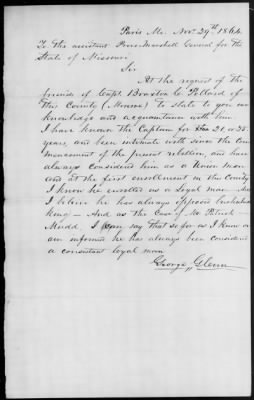 Paris Mo. Nov. 29th 1864.
To the assistant Prov. Marshall General for the
State of Missouri
Sir
At the request of the
friends of Capt. Braxton C. Pollard of
this County (Monroe) to state to you our
knowledge and acquaintance with him.
I have known the Captain for 21 or 25
years, and been intimate with since the Com
mencement of the present rebellion, and have
always considered him as a Union man
and at the first enrollment in this County
I know he enrolled as a Loyal man. And
I believe he has always opposed bushwhac
king — And as the Case of Mr Patrick
Mudd, I can say that so far as I know or
am informed he has always been considered
a consistent loyal man
George Glenn